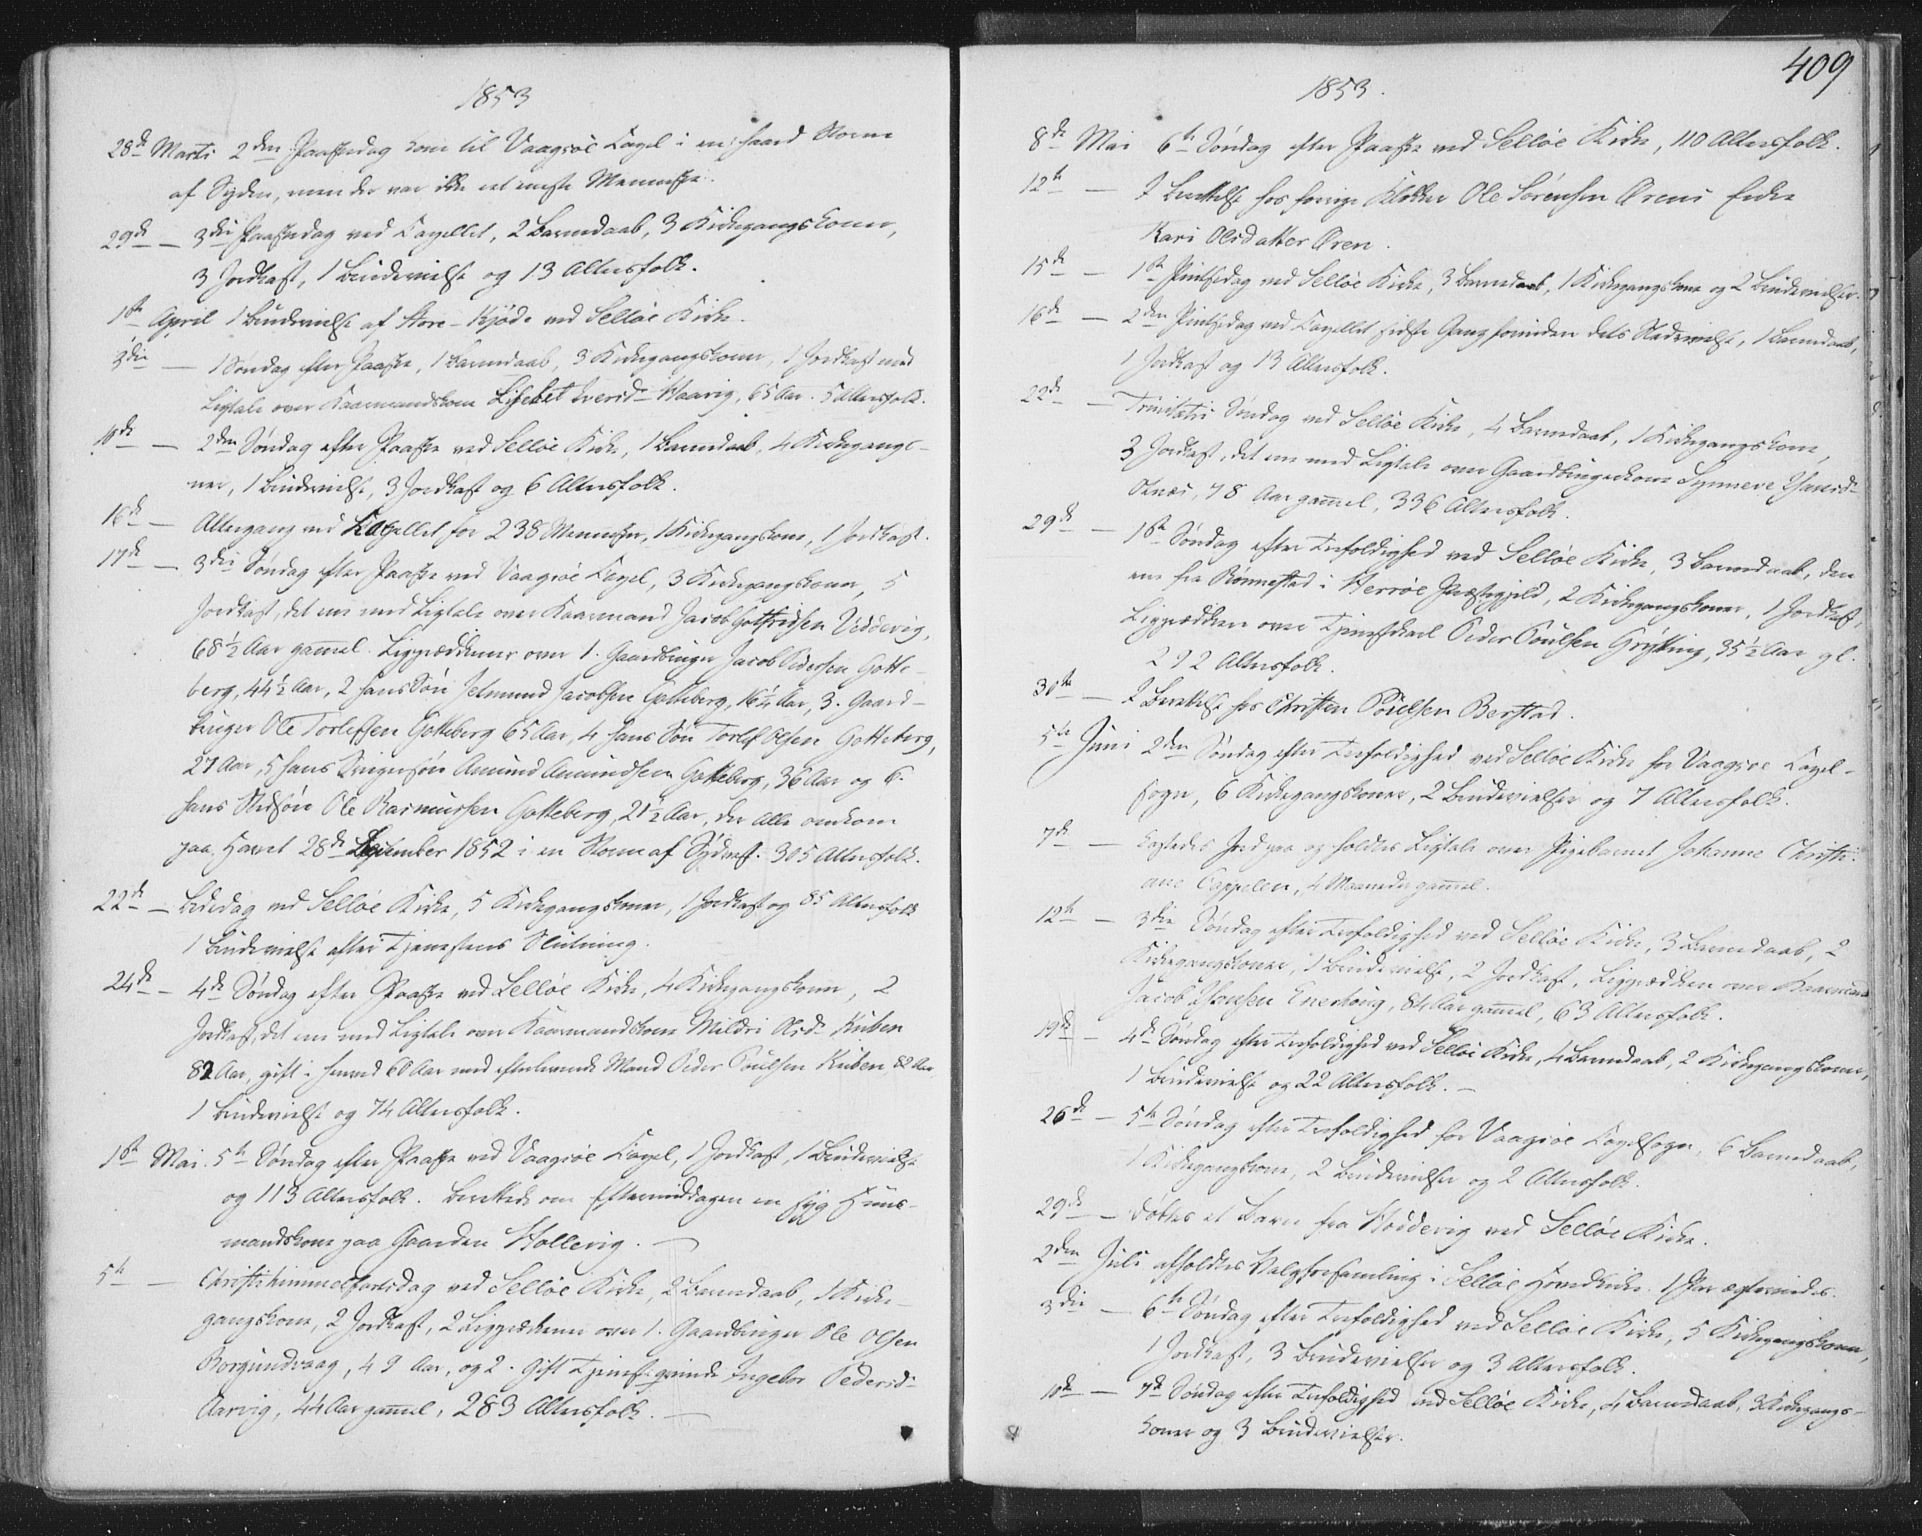 1853
28de Marti 2den Paaskedag kom til Vaagsöe Capel i en haard Storm
af Syden, men der var ikke et eneste Menneske.
29de — 3die Paaskedag ved Capellet, 2 Barnedaab, 3 Kirkegangskoner,
3 Jordkast, 1 Brudevielse og 13 Altersfolk.
1ste April 1 Brudevielse af Store-Kjöde ved Selløe Kirke.
3die — 1 Søndag efter Paaske, 1 Barnedaab, 3 Kirkegangskoner, 1 Jordkast med
Ligtale over Kaarmandskone Lisebet Iversd. Waarig, 65 Aar. 5 Altersfolk.
10de — 2den Søndag efter Paaske ved Selløe Kirke, 1 Barnedaab, 4 Kirkegangs-
ner, 1 Brudevielse, 3 Jordkast og 6 Altersfolk.
16de — Altergang ved Capellet for 238 Mennesker, 1 Kirkegangskone, 1 Jordkast.
17de — 3die Søndag efter Paaske ved Vaagsöe Capel, 3 Kirkegangskoner, 5
Jordkast, det ene med Ligtale over Kaarmand Jacob Gotfridsen Vedvig,
68½ Aar gammel. Ligprædikener over 1. Gaardbruger Jacob Pedersen Gotte-
berg, 44½ Aar, 2 hans Søn Jetmund Jacobsen Gotteberg, 16¼ Aar, 3. Gaard-
bruger Ole Torlefsen Gotteberg 65 Aar, 4 hans Søn Torlef Olsen Gotteberg,
27 Aar, 5 hans Svigersøn Amund Amundsen Gotteberg, 36 Aar og 6.
hans Stedsøn Ole Rasmussen Gotteberg, 21½ Aar, der alle omkom
paa Havet 28de September 1852 i en Storm af Sydvest. 305 Altersfolk.
22de — Bededag ved Selløe Kirke, 5 Kirkegangskoner, 1 Jordkast og 85 Altersfolk
1 Brudevielse efter Tjenestens Slutning.
24de — 4de Søndag efter Paaske ved Selløe Kirke, 4 Kirkegangskoner, 2
Jordkast, det ene med Ligtale over Kaarmandskone Mildri Olsd. Kuben
82 Aar, gift i henved 60 Aar med efterlevende Mand Peder Poulsen Kuben 82 Aar
1 Brudevielse og 74 Altersfolk.
1ste Mai. 5te Søndag efter Paaske ved Vaagsöe Capel, 1 Jordkast, 1 Brudevielse
og 113 Altersfolk. Berettede om Eftermiddagen en syg Huus-
mandskone paa Gaarden Hollevig. —
5te — Christi himmelfartsdag ved Selløe Kirke, 2 Barnedaab, 1 Kirke-
gangskone, 2 Jordkast, 2 Ligprædikener over 1. Gaardbruger Ole Olsen
Borgundvaag, 49 Aar, og 2. Gift Tjenestqvinde Ingebor Pedersd.
Aarvig, 44 Aar gammel, 283 Altersfolk. —
409
1853.
8de Mai 6te Søndag efter Paaske ved Selløe Kirke, 110 Altersfolk.
12te — I Berettelse hos forrige Klokker Ole Sørensen Ørens Enke
Kari Olsdatter Øren.
15de — 1ste Pintsedag ved Selløe Kirke, 3 Barnedaab, 1 Kirkegangskone og 2 Brudevielser.
16de — 2den Pintsedag ved Capellet sidste Gang forinden dets Nedrivelse, 1 Barnedaab,
1 Jordkast og 13 Altersfolk.
22de — Trinitatis Søndag ved Selløe Kirke, 4 Barnedaab, 1 Kirkegangskone,
3 Jordkast, det ene med Ligtale over Gaardbrugerkone Synneve Hansd.
Osnæs, 78 Aar gammel, 336 Altersfolk.
29de — 1ste Søndag efter Trefoldighed ved Selløe Kirke, 3 Barnedaab, den
ene fra Rønnestad i Herröe Præstegjeld, 2 Kirkegangskoner, 1 Jordkast,
Ligprædiken over Tjenestkarl Peder Poulsen Grytting, 35½ Aar gl.
292 Altersfolk.
30te — I Berettelse hos Christen Poulsen Berstad.
5te Juni 2den Søndag efter Trefoldighed ved Selløe Kirke for Vaagsöe Capel-
sogn, 6 Kirkegangskoner, 2 Brudevielser og 7 Altersfolk.
7de — Kastedes Jord paa og holdtes Ligtale over Pigebarnet Johanne Christi-
ane Cappelen, 4 Maaneder gammel.
12te — 3die Søndag efter Trefoldighed ved Selløe Kirke, 3 Barnedaab, 2
Kirkegangskoner, 1 Brudevielse, 2 Jordkast, Ligprædiken over Kaarmand
Jacob Hansen Enerhoug, 84 Aar gammel, 63 Altersfolk.
19de — 4de Søndag efter Trefoldighed ved Selløe Kirke, 4 Barnedaab, 2 Kirkegangskoner,
1 Brudevielse og 22 Altersfolk. —
26de — 5te Søndag efter Trefoldighed for Vaagsöe Capelsogn, 6 Barnedaab,
1 Kirkegangskone, 2 Brudevielser og 2 Altersfolk.
29de — Døbtes et Barn fra Hoddevig ved Selløe Kirke.
2den Juli afholdtes Valgforsamling i Selløe Hovedkirke. 1 Par ægteviedes.
3die — 6te Søndag efter Trefoldighed ved Selløe Kirke, 5 Kirkegangskoner,
1 Jordkast, 3 Brudevielser og 3 Altersfolk.
10de — 7de Søndag efter Trefoldighed ved Selløe Kirke, 4 Barnedaab, 3 Kirkegangs-
koner og 3 Brudevielser.